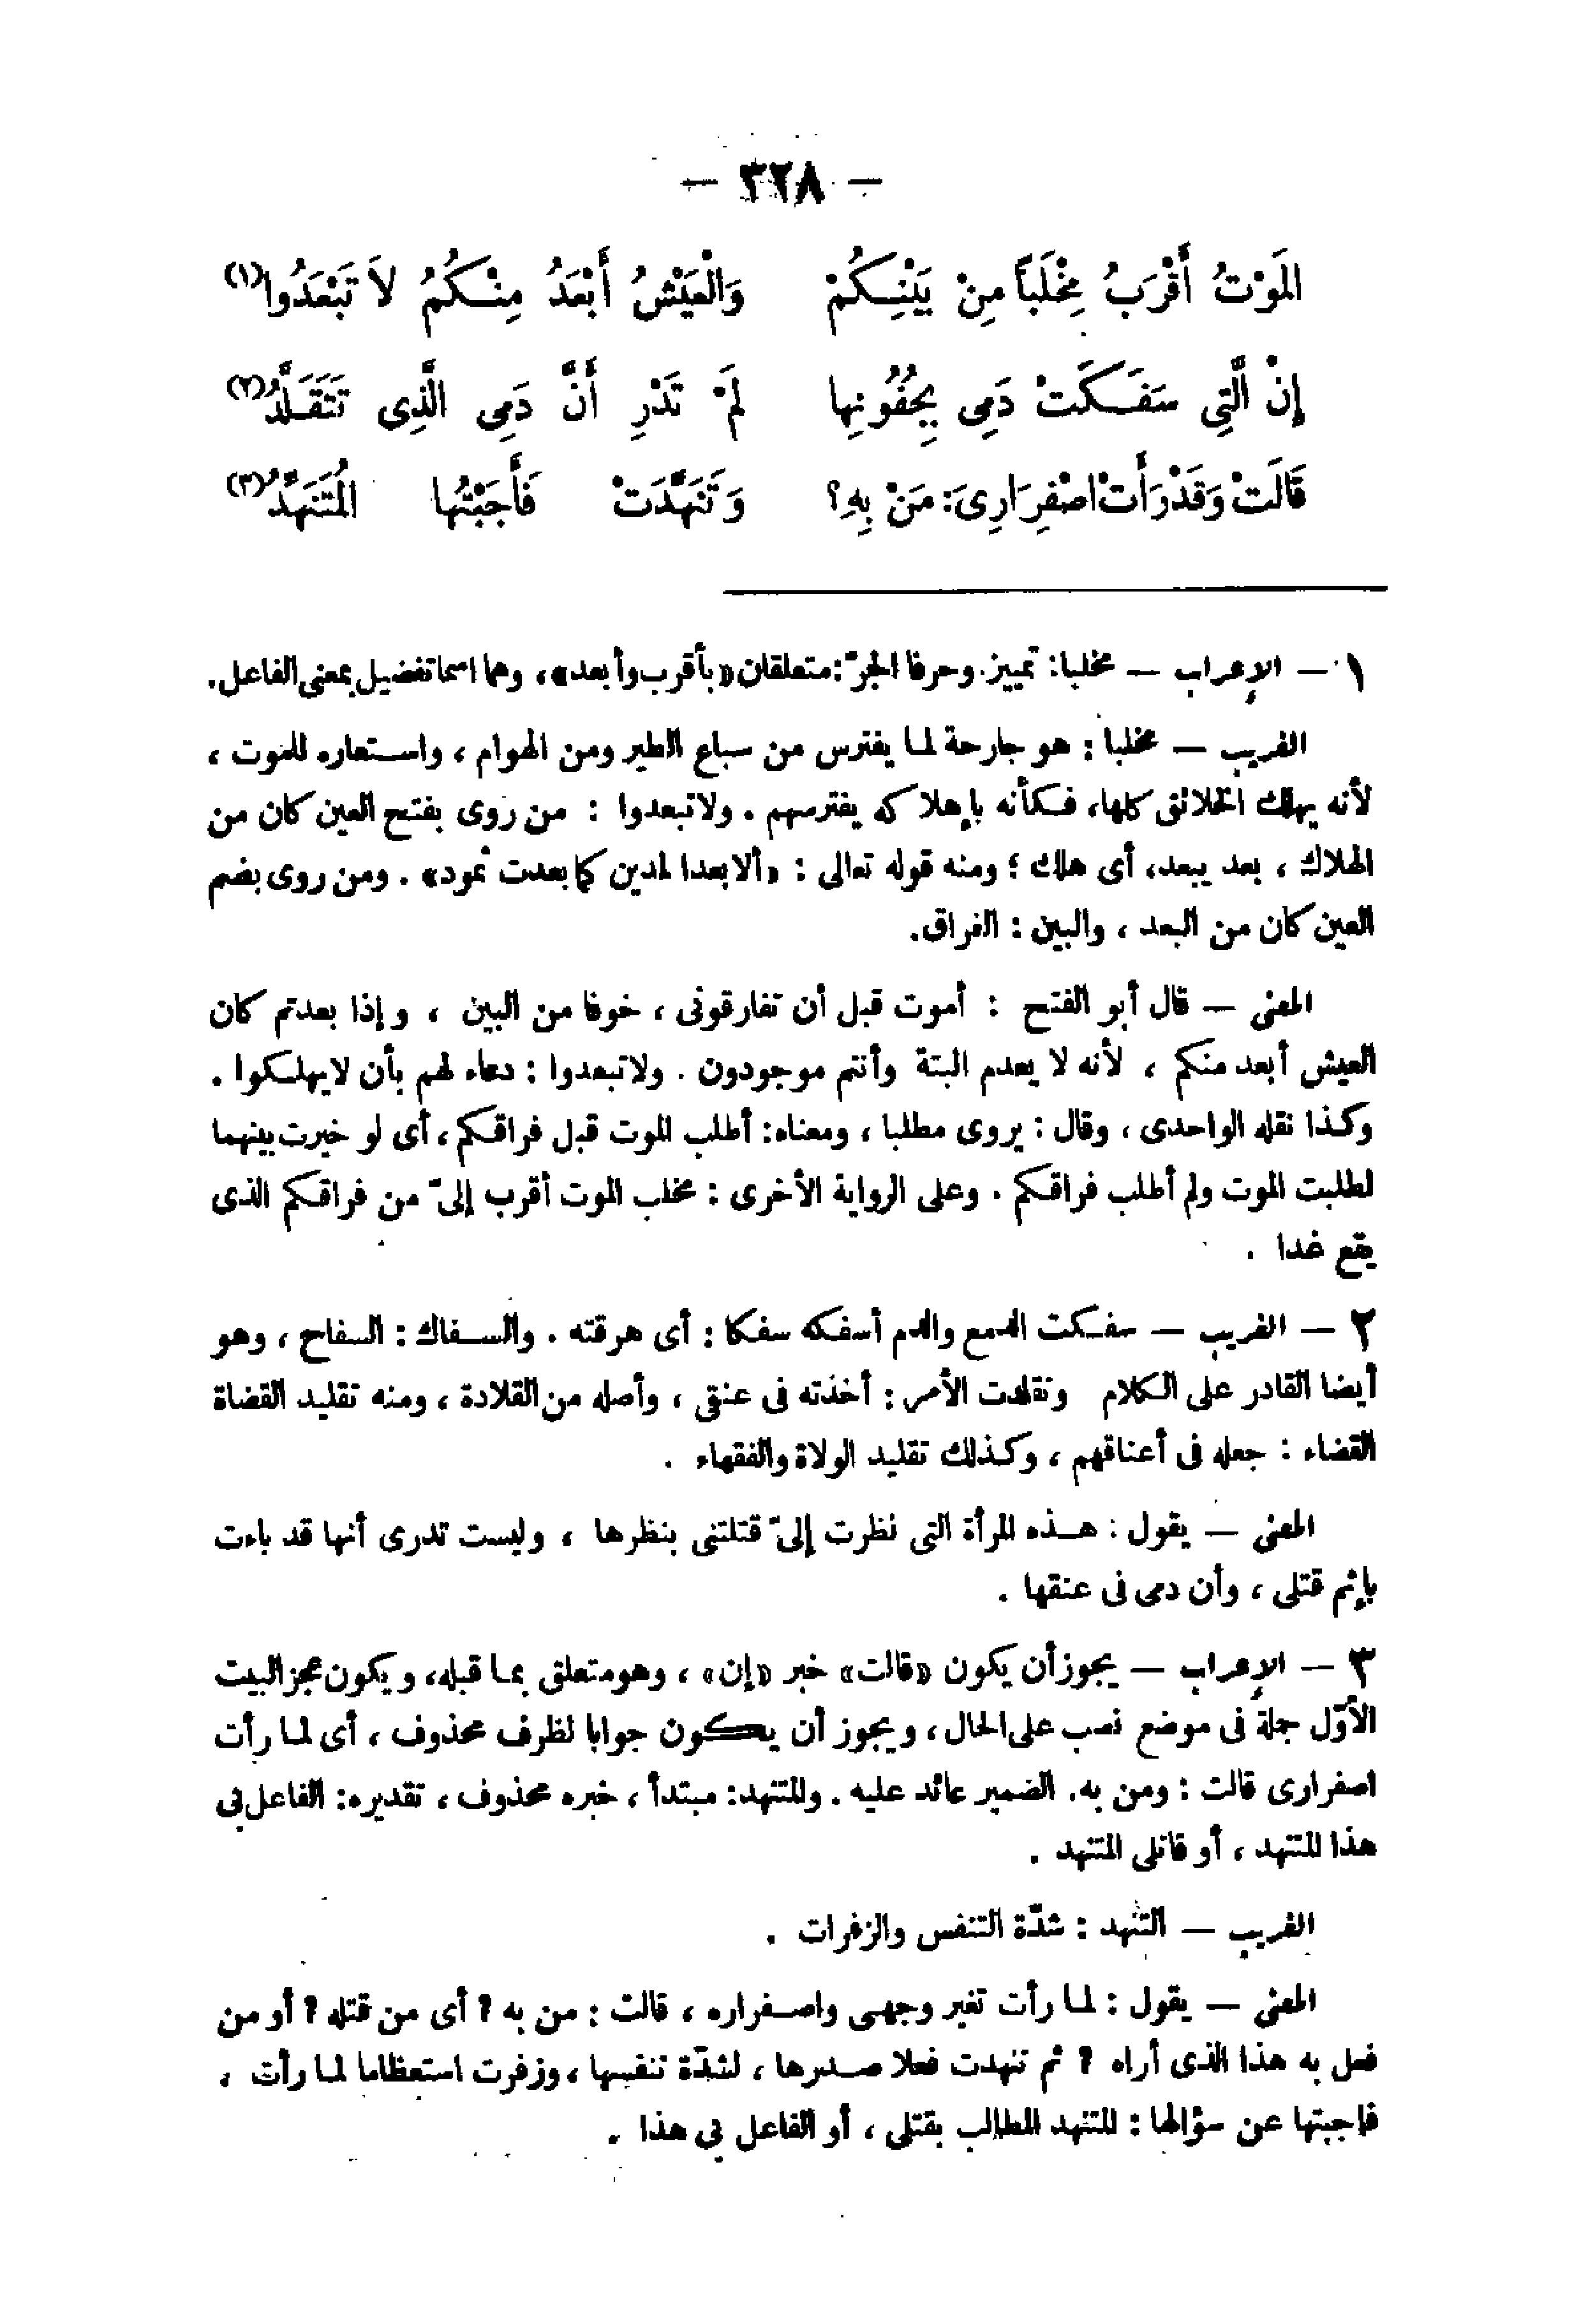 — ٣٢٨ —
المَوْتُ أَقْرَبُ مِخْلَباً مِنْ بَيْنِكُمْ وَالْعَيْشُ أَبْعَدُ مِنْكُمُ لاَ تَبْعَدُوا(١)
إِنْ الَّتِي سَفَكَتْ دَمِى بِجُفُونِها لَمْ تَدْرِ أَنَّ دَمِى الَّذِى تَتَقَلَّدُ(٢)
قَالَتْ وَقَدْ رَأَتْ اصْفِرَارِىَ: مَنْ بِهِ؟ وَتَنَهَّدَتْ فَأَجَبْتُها المُتَنَهِّدُ(٣)
١ — الإعراب — مخلبا: تمييز. وحرفا الجرّ: متعلقان «بأقرب وأبعد»، وهما اسما تفضيل بمعنى الفاعل.
الغريب — مخلبا : هو جارحة لما يفترس من سباع الطير ومن الهوام ، واستعاره للموت ،
لأنه يهلك الخلائق كلها، فكأنه بإهلاكه يفترسهم . ولا تبعدوا : من روى بفتح العين كان من
الهلاك ، بعد يبعد، أى هلك ؛ ومنه قوله تعالى : «ألا بعدا لمدين كما بعدت ثمود» . ومن روى بضم
العين كان من البعد ، والبين : الفراق.
المعنى — قال أبو الفتح : أموت قبل أن تفارقونى ، خوفا من البين ، وإذا بعدتم كان
العيش أبعد منكم ، لأنه لا يعدم البتة وأنتم موجودون . ولا تبعدوا : دعاء لهم بأن لا يهلكوا .
وكذا نقله الواحدى ، وقال : يروى مطلبا ، ومعناه: أطلب الموت قبل فراقكم ، أى لو خيرت بينهما
لطلبت الموت ولم أطلب فراقكم . وعلى الرواية الأخرى : مخلب الموت أقرب إلىّ من فراقكم الذى
يقع غدا .
٢ — الغريب — سفكت الدمع والدم أسفكه سفكا : أى هرقته . والسفاك : السفاح ، وهو
أيضا القادر على الكلام وتقلدت الأمر : أخذته فى عنقى ، وأصله من القلادة ، ومنه تقليد القضاة
القضاء : جعله فى أعناقهم ، وكذلك تقليد الولاة والفقهاء .
المعنى — يقول : هذه المرأة التى نظرت إلىّ قتلتنى بنظرها ، وليست تدرى أنها قد باءت
بإثم قتلى ، وأن دمى فى عنقها .
٣ — الإعراب — يجوز أن يكون «قالت» خبر «إن» ، وهو متعلق بما قبله، ويكون عجز البيت
الأوّل جملة فى موضع نصب على الحال ، ويجوز أن يكون جوابا لظرف محذوف ، أى لما رأت
اصفرارى قالت : ومن به. الضمير عائد عليه . والمتنهد: مبتدأ ، خبره محذوف ، تقديره: الفاعل بى
هذا المتنهد ، أو قاتلى المتنهد .
الغريب — التنهد : شدّة التنفس والزفرات .
المعنى — يقول : لما رأت تغير وجهى واصفراره ، قالت : من به ؟ أى من قتله ؟ أو من
فعل به هذا الذى أراه ؟ ثم تنهدت فعلا صدرها ، لشدّة تنفسها ، وزفرت استعظاما لما رأت ،
فاجبتها عن سؤالها : المتنهد المطالب بقتلى ، أو الفاعل بى هذا .